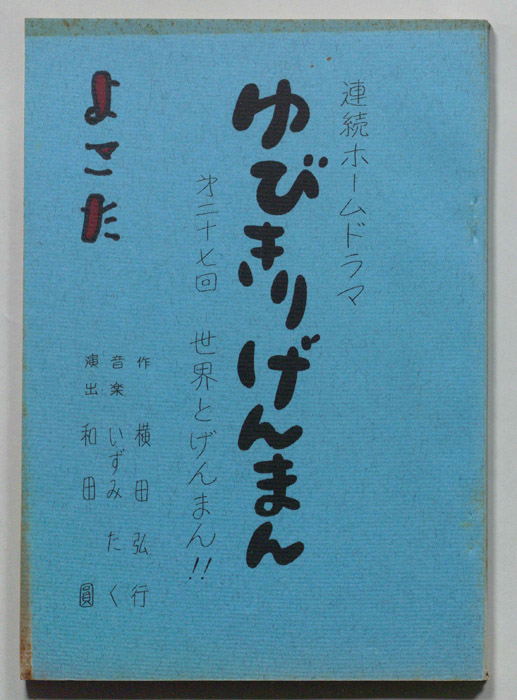 連続ホームドラマ
ゆびきりげんまん
第二十七回 世界とげんまん!!
作 横田弘行
音楽 いずみたく
演出 和田 圓
よこた